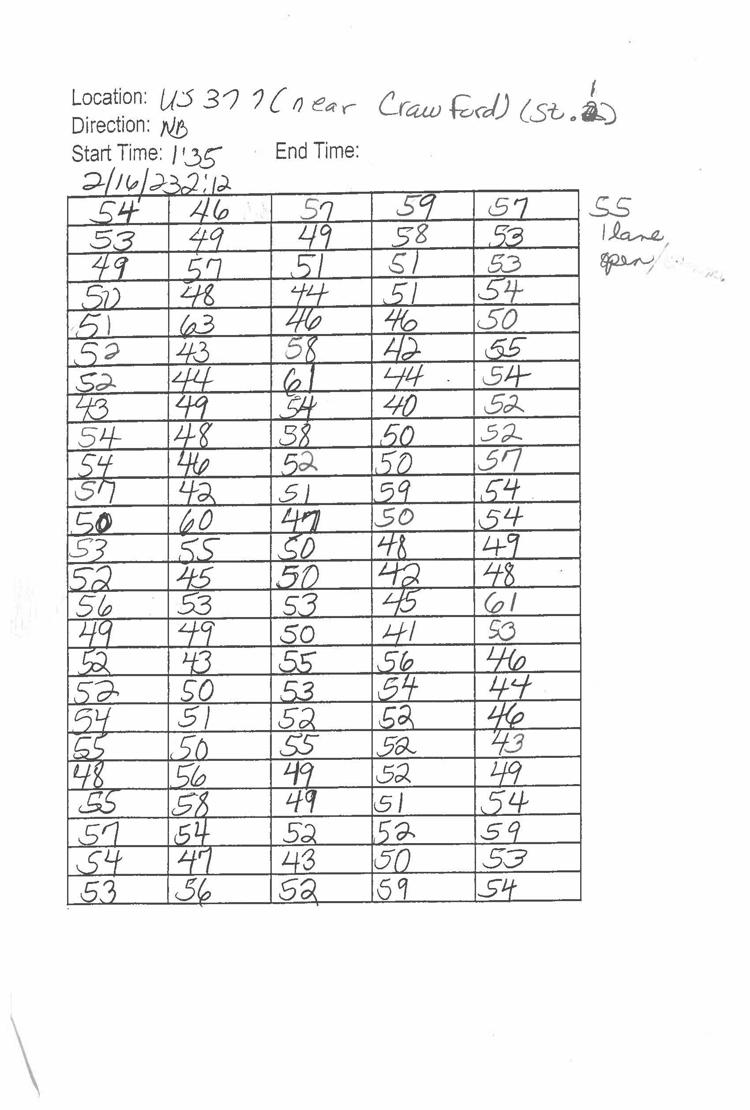 Location: US 377 (near Crawford) (St. 1)
Direction: NB
Start Time: 1:35 End Time:
2/16/23 2:12
54 46 57 59 57 55
53 49 49 58 53 1 lane
49 57 51 51 53 open/
50 48 44 51 54
51 63 46 46 50
52 43 58 42 55
52 44 61 44 54
43 49 54 40 52
54 48 58 50 52
54 46 52 50 57
57 42 51 59 54
50 60 47 50 54
53 55 50 48 49
52 45 50 42 48
56 53 53 45 61
49 49 50 41 53
52 43 55 56 46
52 50 53 54 44
54 51 52 52 46
55 50 55 52 43
48 56 49 52 49
55 58 49 51 54
57 54 52 52 59
54 47 43 50 53
53 56 52 59 54